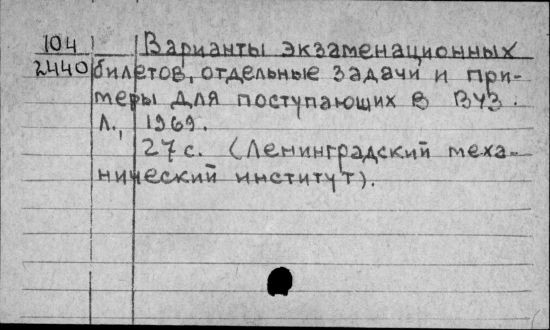 104 Варианты экзаменационных
2440 билетов, отдельные задачи и при-
меры для поступающих в ВУЗ.
Л., 1969.
27 с. (Ленинградский меха-
нический институт).